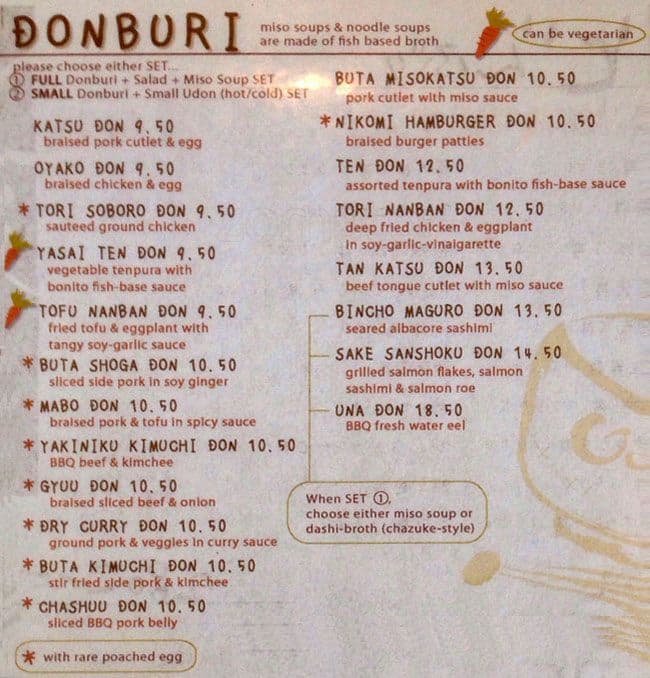 DONBURI
miso soups & noodle soups
are made of fish based broth
can be vegetarian
please choose either SET...
① FULL Donburi + Salad + Miso Soup SET
② SMALL Donburi + Small Udon (hot/cold) SET
KATSU DON 9.50
braised pork cutlet & egg
OYAKO DON 9.50
braised chicken & egg
* TORI SOBORO DON 9.50
sauteed ground chicken
YASAI TEN DON 9.50
vegetable tenpura with
bonito fish-base sauce
TOFU NANBAN DON 9.50
fried tofu & eggplant with
tangy soy-garlic sauce
* BUTA SHOGA DON 10.50
sliced side pork in soy ginger
* MABO DON 10.50
braised pork & tofu in spicy sauce
* YAKINIKU KIMUCHI DON 10.50
BBQ beef & kimchee
* GYUU DON 10.50
braised sliced beef & onion
* DRY CURRY DON 10.50
ground pork & veggies in curry sauce
* BUTA KIMUCHI DON 10.50
stir fried side pork & kimchee
* CHASHUU DON 10.50
sliced BBQ pork belly
* with rare poached egg
BUTA MISOKATSU DON 10.50
pork cutlet with miso sauce
* NIKOMI HAMBURGER DON 10.50
braised burger patties
TEN DON 12.50
assorted tenpura with bonito fish-base sauce
TORI NANBAN DON 12.50
deep fried chicken & eggplant
in soy-garlic-vinaigarette
TAN KATSU DON 13.50
beef tongue cutlet with miso sauce
BINCHO MAGURO DON 13.50
seared albacore sashimi
SAKE SANSHOKU DON 14.50
grilled salmon flakes, salmon
sashimi & salmon roe
UNA DON 18.50
BBQ fresh water eel
When SET ①,
choose either miso soup or
dashi-broth (chazuke-style)